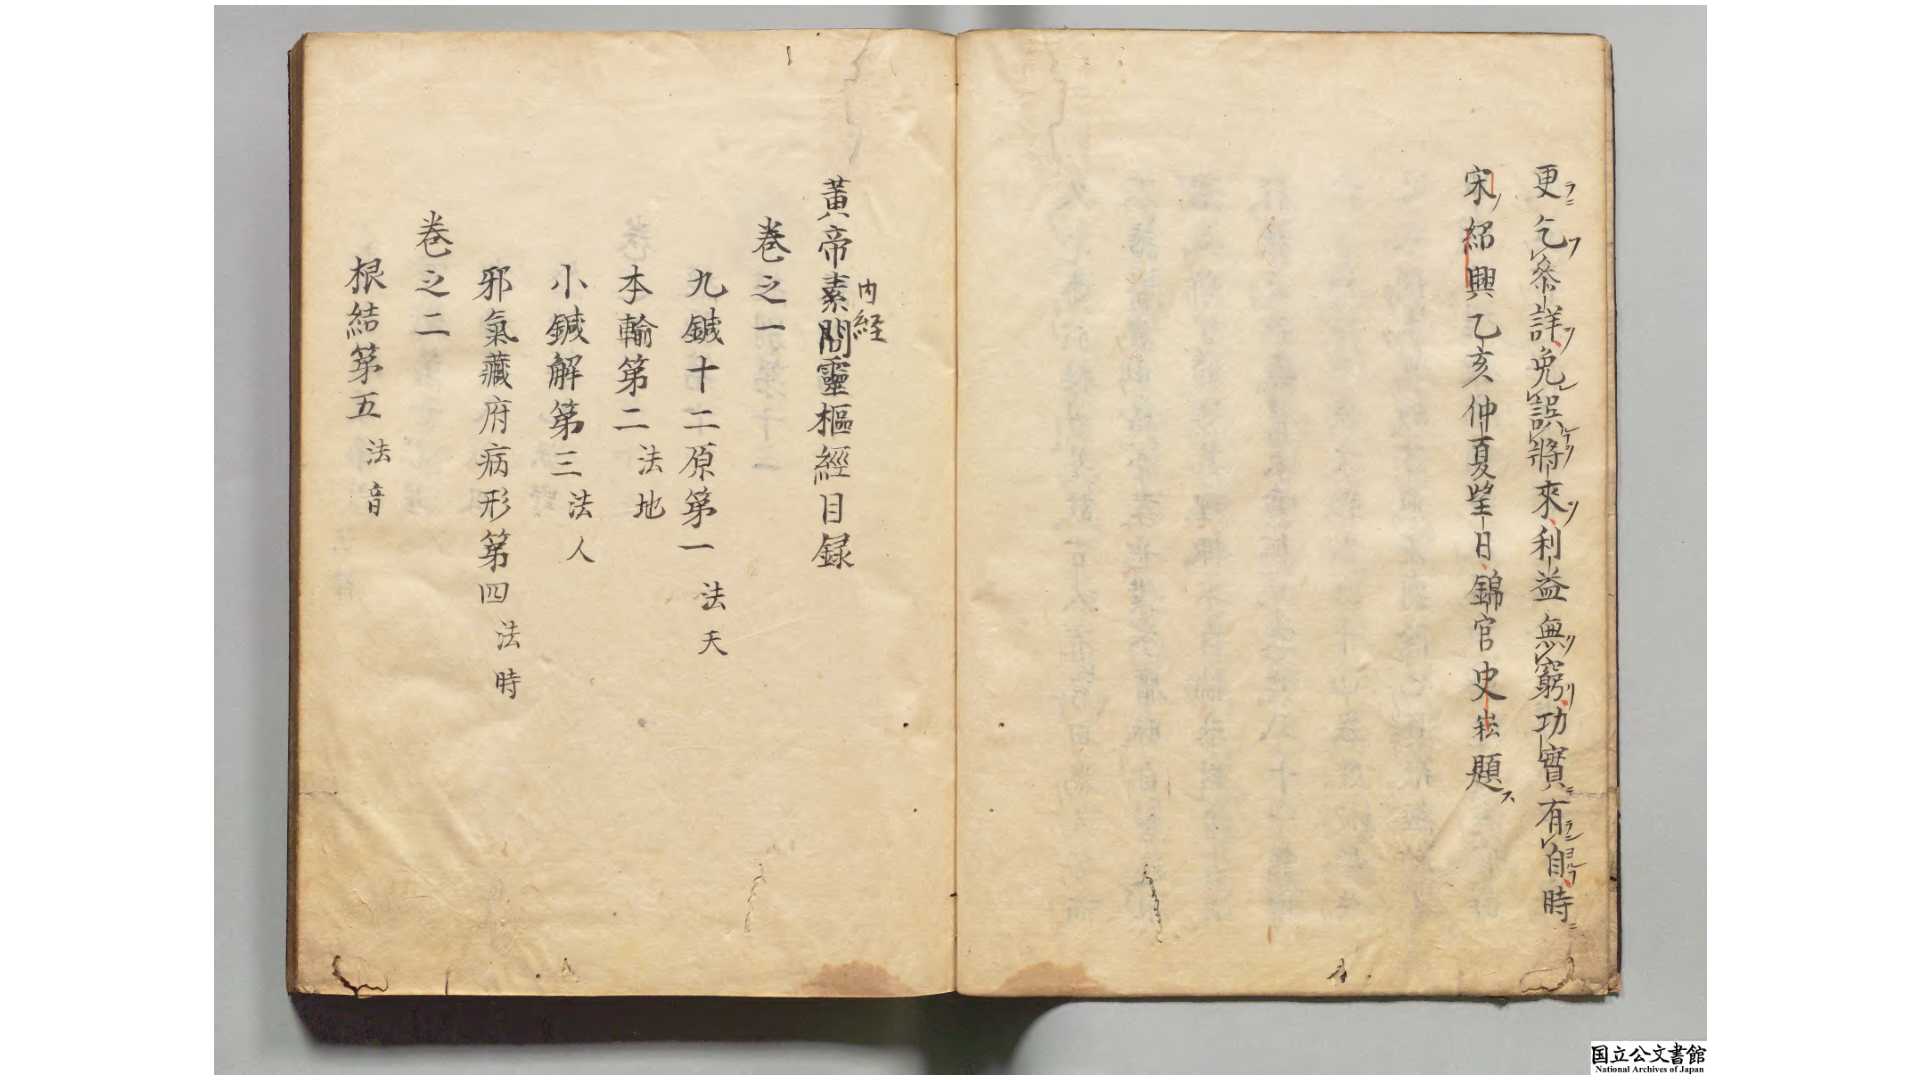 更乞叅詳免誤將來利益無窮功實有自時
宋紹興乙亥仲夏望日錦官史崧題
黄帝素問靈樞經目録
内経
卷之一
九鍼十二原第一 法天
本輸第二 法地
小鍼解第三 法人
邪氣藏府病形第四 法時
卷之二
根結第五 法音
国立公文書館
National Archives of Japan